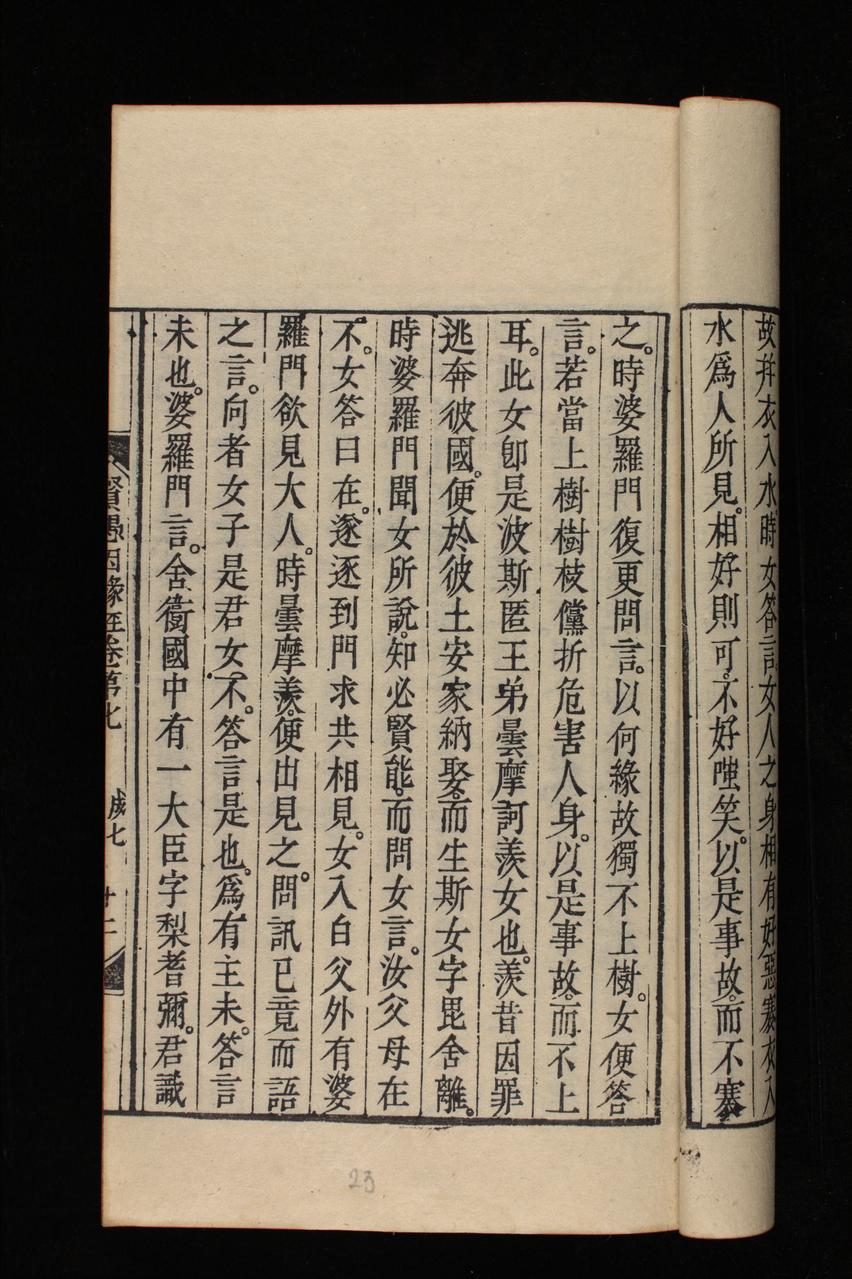 故并衣入水時女答言女人之身相有好惡褰衣入
水爲人所見。相好則可。不好嗤笑。以是事故。而不褰
之。時婆羅門復更問言。以何緣故獨不上樹。女便答
言。若當上樹樹枝儻折危害人身。以是事故。而不上
耳。此女卽是波斯匿王弟曇摩訶羨女也。羨昔因罪
逃奔彼國。便於彼土安家納娶。而生斯女字毘舍離。
時婆羅門聞女所說。知必賢能。而問女言。汝父母在
不。女答曰在。遂逐到門求共相見。女入白父外有婆
羅門欲見大人。時曇摩羨。便出見之。問訊已竟而語
之言。向者女子是君女不。答言是也。爲有主未。答言
未也。婆羅門言。舍衛國中有一大臣字梨耆彌。君識
賢愚因緣經卷第七 成七 十二
23